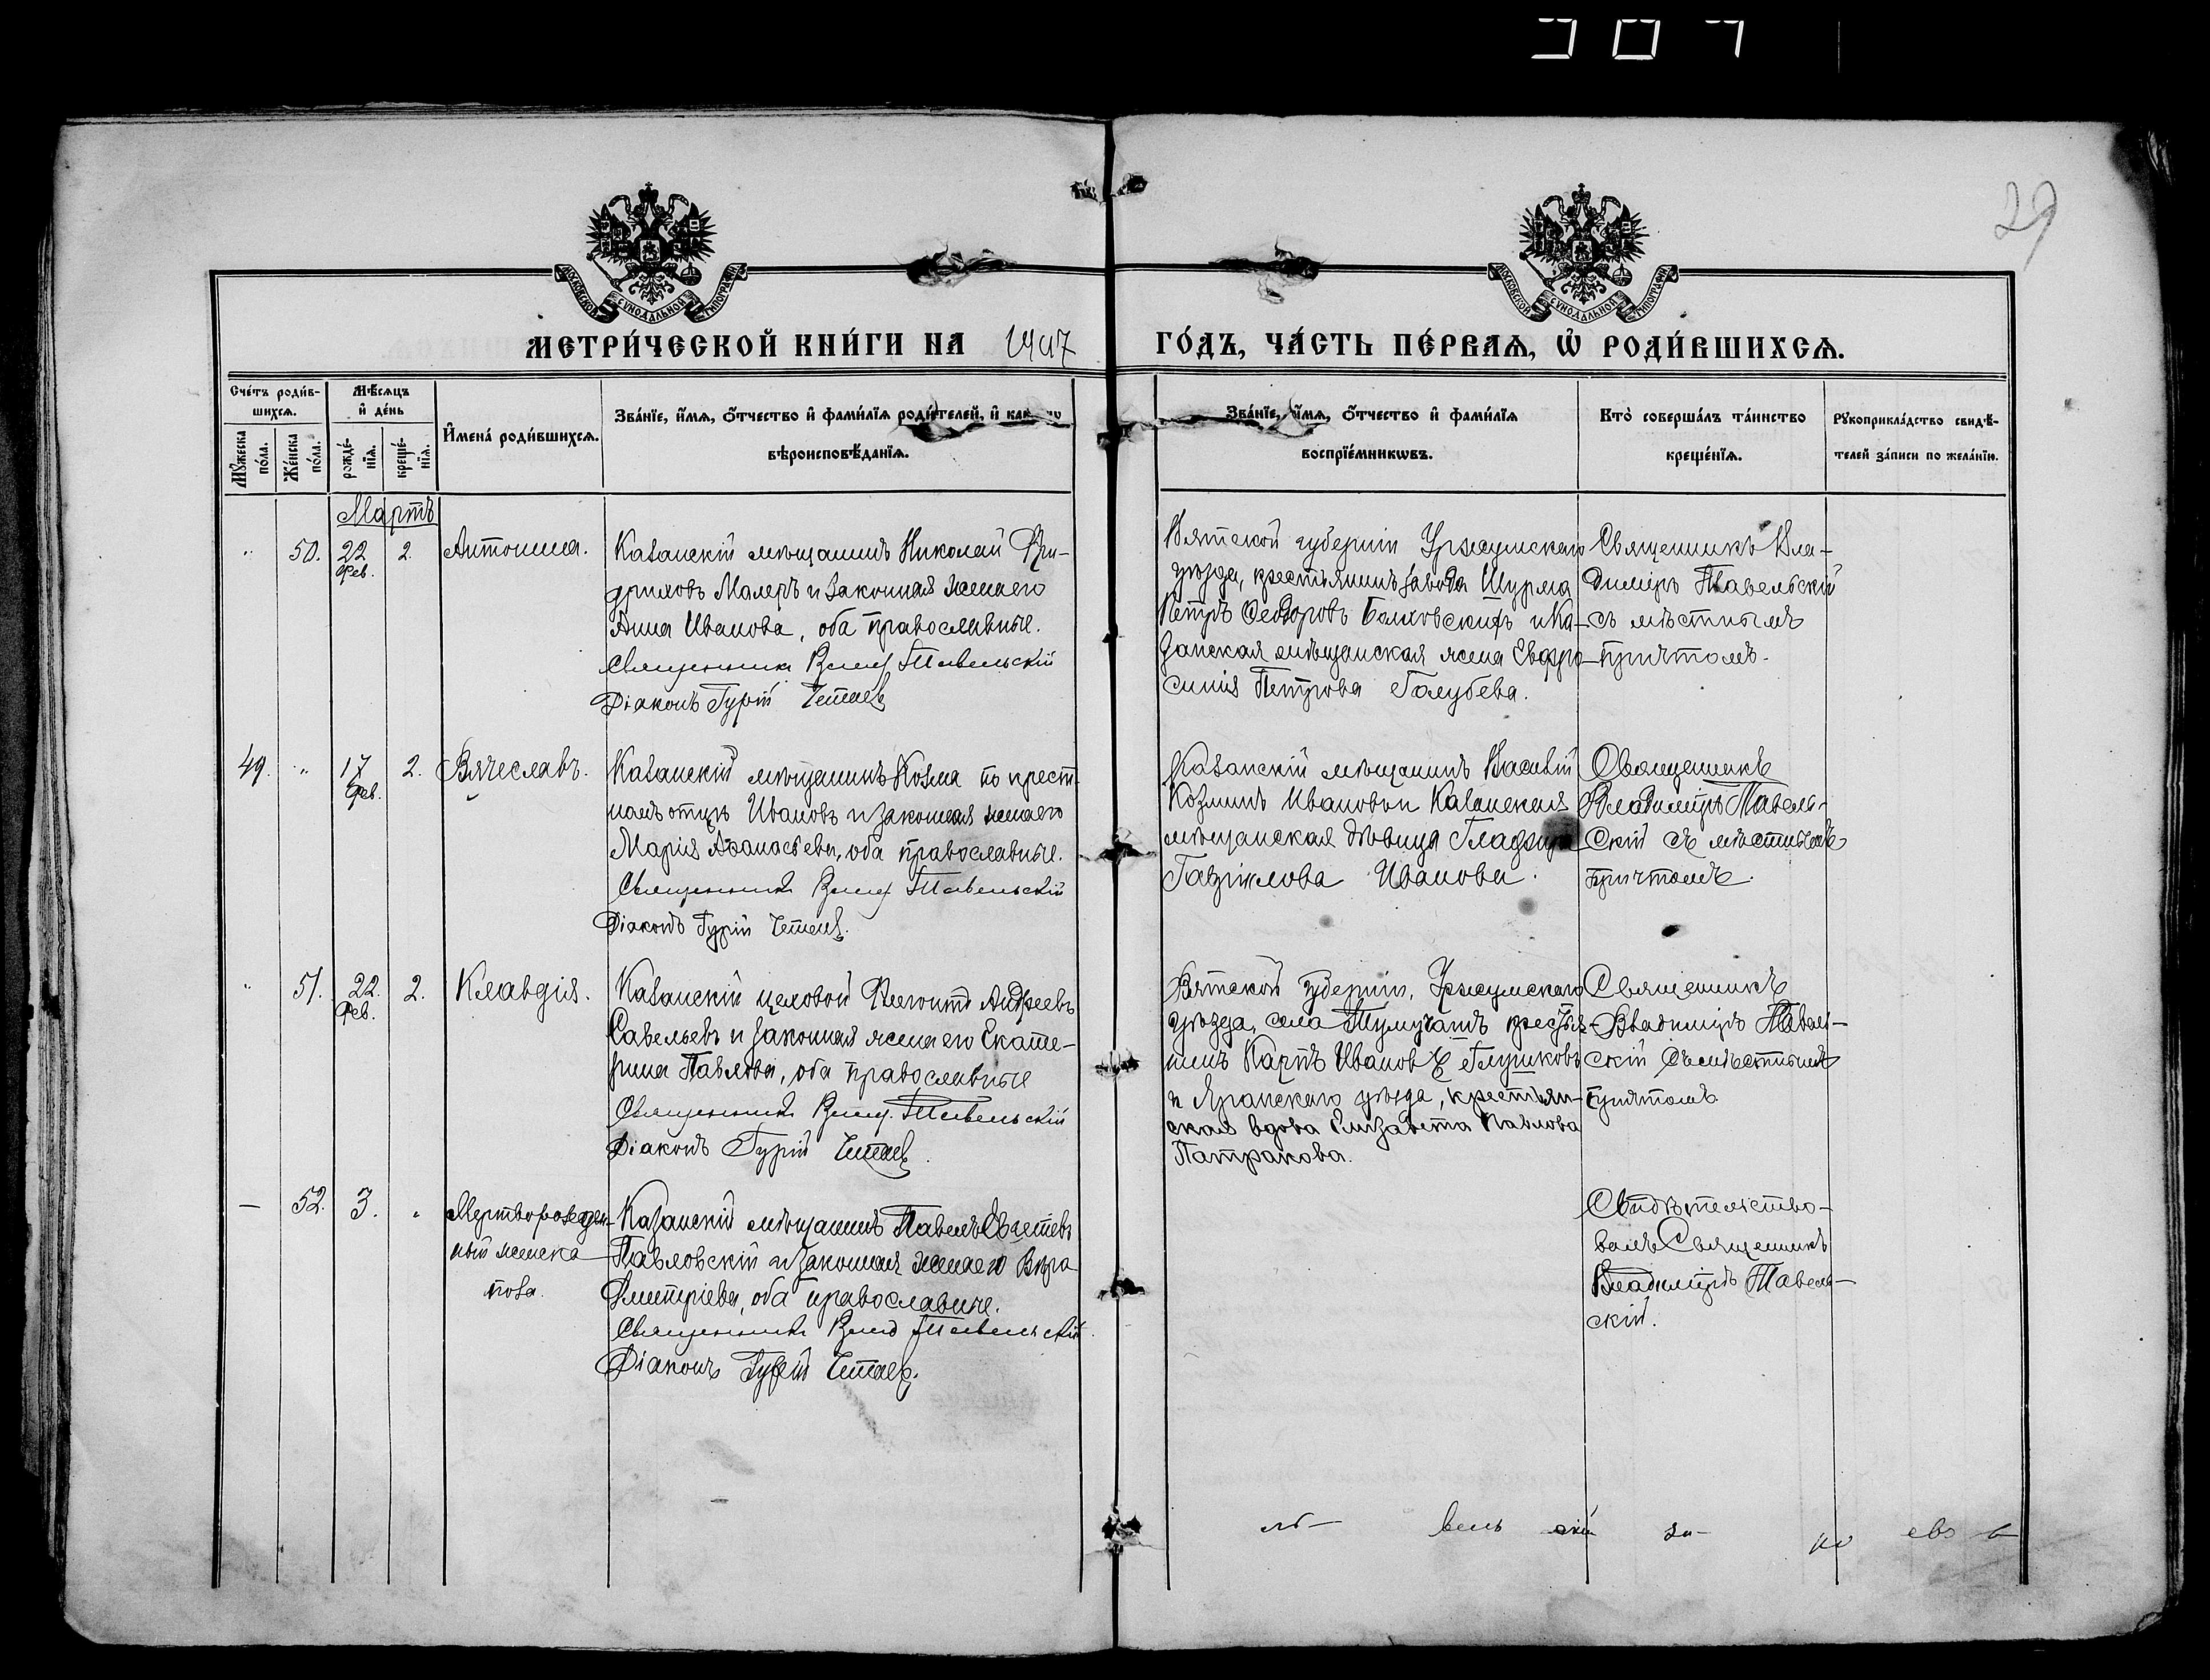 29
МОСКОВСКОЙ СУНОДАЛЬНОЙ ТИПОГРАФІИ
МОСКОВСКОЙ СУНОДАЛЬНОЙ ТИПОГРАФІИ
МЕТРИ́ЧЕСКОЙ КНИ́ГИ НА 1907 ГО́ДЪ, ЧА́СТЬ ПЕ́РВАѦ, Ѡ҆ РОДИ́ВШИХСѦ.
Сче́тъ роди́в-
шихсѧ.
Мꙋ́жеска по́ла.
Же́нска по́ла.
Мѣ́сѧцъ
и҆ де́нь
рожде́-нїѧ.
креще́-нїѧ.
И҆мена̀ роди́вшихсѧ.
Зва́нїе, и҆́мѧ, ѻ҆́тчество и҆ фами́лїѧ роди́телей, и҆
вѣроисповѣ́данїѧ.
Зва́нїе, и҆́мѧ, ѻ҆́тчество и҆ фами́лїѧ
воспрїе́мникѡвъ.
Кто̀ соверша́лъ та́инство
креще́нїѧ.
Рꙋкоприкла́дство свидѣ́-
телей за́писи по жела́нїю.
Мартъ
" 50. 22 Фев. 2. Антонина.
Казанскій мѣщанинъ Николай Фри-
дриховъ Малеръ и законная жена его
Анна Иванова, оба православные.
Священникъ Влад. Тавельскій
Діаконъ Гурій
Вятской губерніи Уржумскаго
уѣзда, крестьянинъ завода Шурма
Петръ Ѳеодоровъ и Ка-
занская мѣщанская жена Евфро-
синія Петрова Голубева.
Священникъ Вла-
диміръ Тавельскій
съ мѣстнымъ
причтомъ.
49. " 17 Фев. 2. Вячеславъ.
Казанскій мѣщанинъ Козма по крест-
номъ отцѣ Ивановъ и законная жена его
Марія Аѳанасьева, оба православные.
Священникъ Влад. Тавельскій
Діаконъ Гурій
Казанскій мѣщанинъ Василій
Козминъ Ивановъ и Казанская
мѣщанская дѣвица Глафира
Гавриилова Иванова.
Священникъ
Владиміръ Тавель-
скій съ мѣстнымъ
причтомъ.
" 51. 22. Фев. 2. Клавдія.
Казанскій цеховой Андреевъ
Савельевъ и законная жена его Екате-
рина Павлова, оба православные
Священникъ Влад. Тавельскій
Діаконъ Гурій
Вятской губерніи, Уржумскаго
уѣзда, села крестья-
нинъ Карпъ Ивановъ Глушковъ
и Яранскаго уѣзда, крестьян-
ская вдова Елизавета Павлова
Патракова.
Священникъ
Владиміръ Тавель-
скій съ мѣстнымъ
причтомъ
— 52. 3. " Мертворожден-
ный женска
пола.
Казанскій мѣщанинъ Павелъ
Павловскій и законная жена его Вѣра
Дмитріева, оба православные.
Священникъ Влад Тавельскій
Діаконъ Гурій
Свидѣтельство-
валъ Священникъ
Владиміръ Тавель-
скій.
вель скій за- но ево